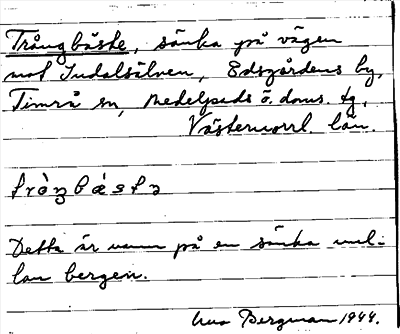 Trångbäske, sänka på vägen
mot Indalsälven, Edsgårdens by,
Timrå sn, Medelpads ö. doms. tg,
Västernorrl. län.
Detta är namn på en sänka mel-
lan bergen.
Bergman 1944.